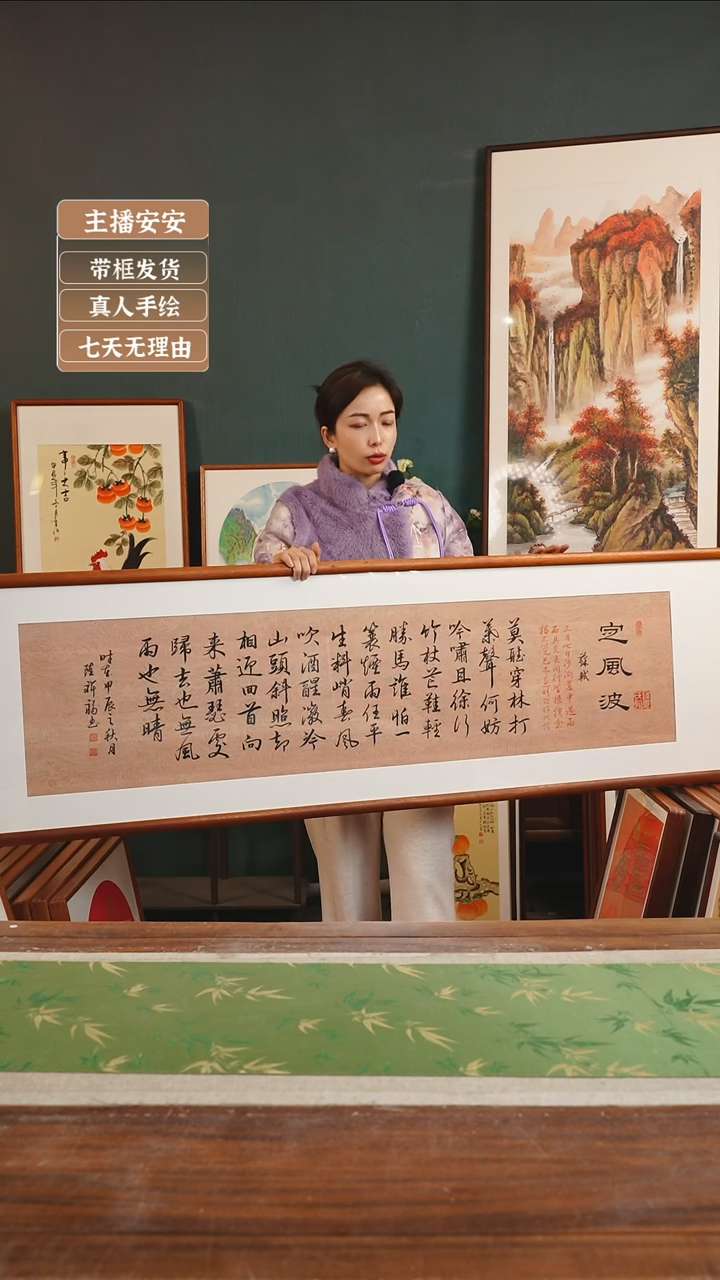 主播安安
带框发货
真人手绘
七天无理由
事事大吉
定風波
蘇軾
三月七日沙湖道中遇雨
雨具先去同行皆狼狽余
莫聽穿林打
葉聲何妨
吟嘯且徐行
竹杖芒鞋輕
勝馬誰怕一
蓑煙雨任平
生料峭春風
吹酒醒微冷
山頭斜照却
相迎回首向
来蕭瑟處
歸去也無風
雨也無晴
時在甲辰之秋月